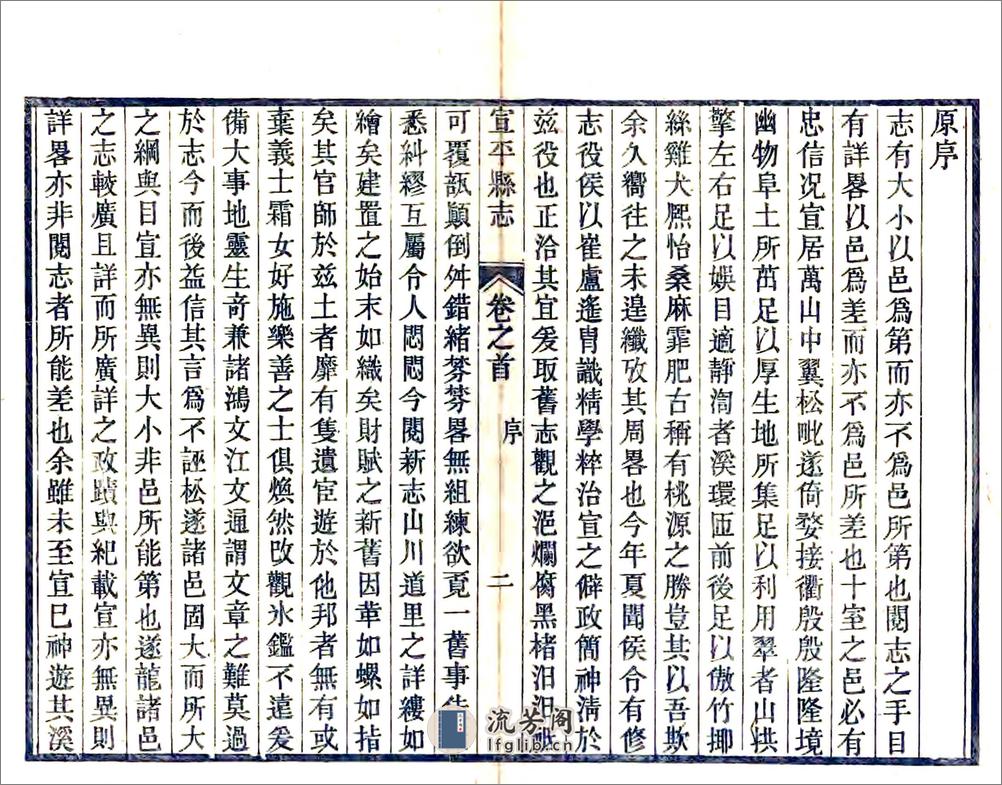 原序
志有大小以邑爲第而亦不爲邑所第也閱志之手目
有詳畧以邑爲差而亦不爲邑所差也十室之邑必有
忠信况宣居萬山中翼松毗遂倚婺接衢殷殷隆隆境
幽物阜土所茁足以厚生地所集足以利用翠者山拱
擎左右足以娛目適靜渹者溪環匝前後足以傲竹揶
絲雞犬熙怡桑麻霏肥古稱有桃源之勝豈其以吾欺
余久嚮往之未遑纖攷其周畧也今年夏聞侯令有修
志役侯以崔盧遙胄識精學粹治宣之僻政簡神淸於
兹役也正洽其宜爰取舊志觀之浥爛腐黑楮汨汨
宣平縣志 卷之首 序 二
可覆瓿顚倒舛錯緒棼棼畧無組練欲覔一舊事
悉糾繆互屬令人悶悶今閱新志山川道里之詳縷如
繪矣建置之始末如織矣財賦之新舊因革如螺如指
矣其官師於兹土者靡有隻遺宦遊於他邦者無有或
棄義士霜女好施樂善之士俱煥然改觀氷鑑不遠爰
備大事地靈生奇兼諸鴻文江文通謂文章之難莫過
於志今而後益信其言爲不誣松遂諸邑固大而所大
之綱與目宣亦無異則大小非邑所能第也遂龍諸邑
之志較廣且詳而所廣詳之政蹟與紀載宣亦無異則
詳畧亦非閱志者所能差也余雖未至宣巳神遊其溪
流芳阁
lfglib.cn